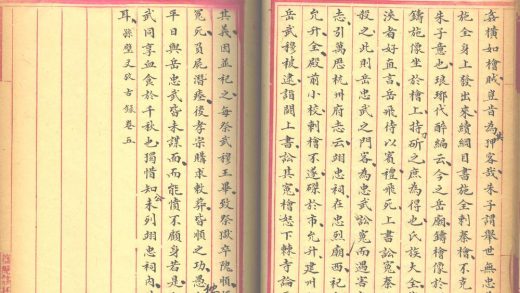 橫如檜賊豈為押客哉朱子謂舉世無忠
施全身上發出來續綱目書施全刺秦檜不克
朱子意也琅琊代醉編云今之岳廟鑄檜像於
鑄施像坐於檜上持刀斫之庶為得也氏族大全
浹者好直言岳飛待以賓禮飛死上書訟寃秦
殺之此則岳忠武之門客為忠武訟寃而遇害
志引萬厯杭州府志云翊忠祠在忠烈廟西祀
允升全殿前小校刺檜不遂磔於市允升建州
岳武穆被逮詣闕上書訟其寃檜怒下棘寺論
其義因並祀之每祭武穆王畢致祭獄卒隗順
寃死負屍潛瘞後孝宗購求敕葬皆順之功
平日與岳忠武皆未謀面而能憤不顧身若是
武同享血食於千秋也獨惜知公未列翊忠祠内
耳 孫壁文攷古錄卷五